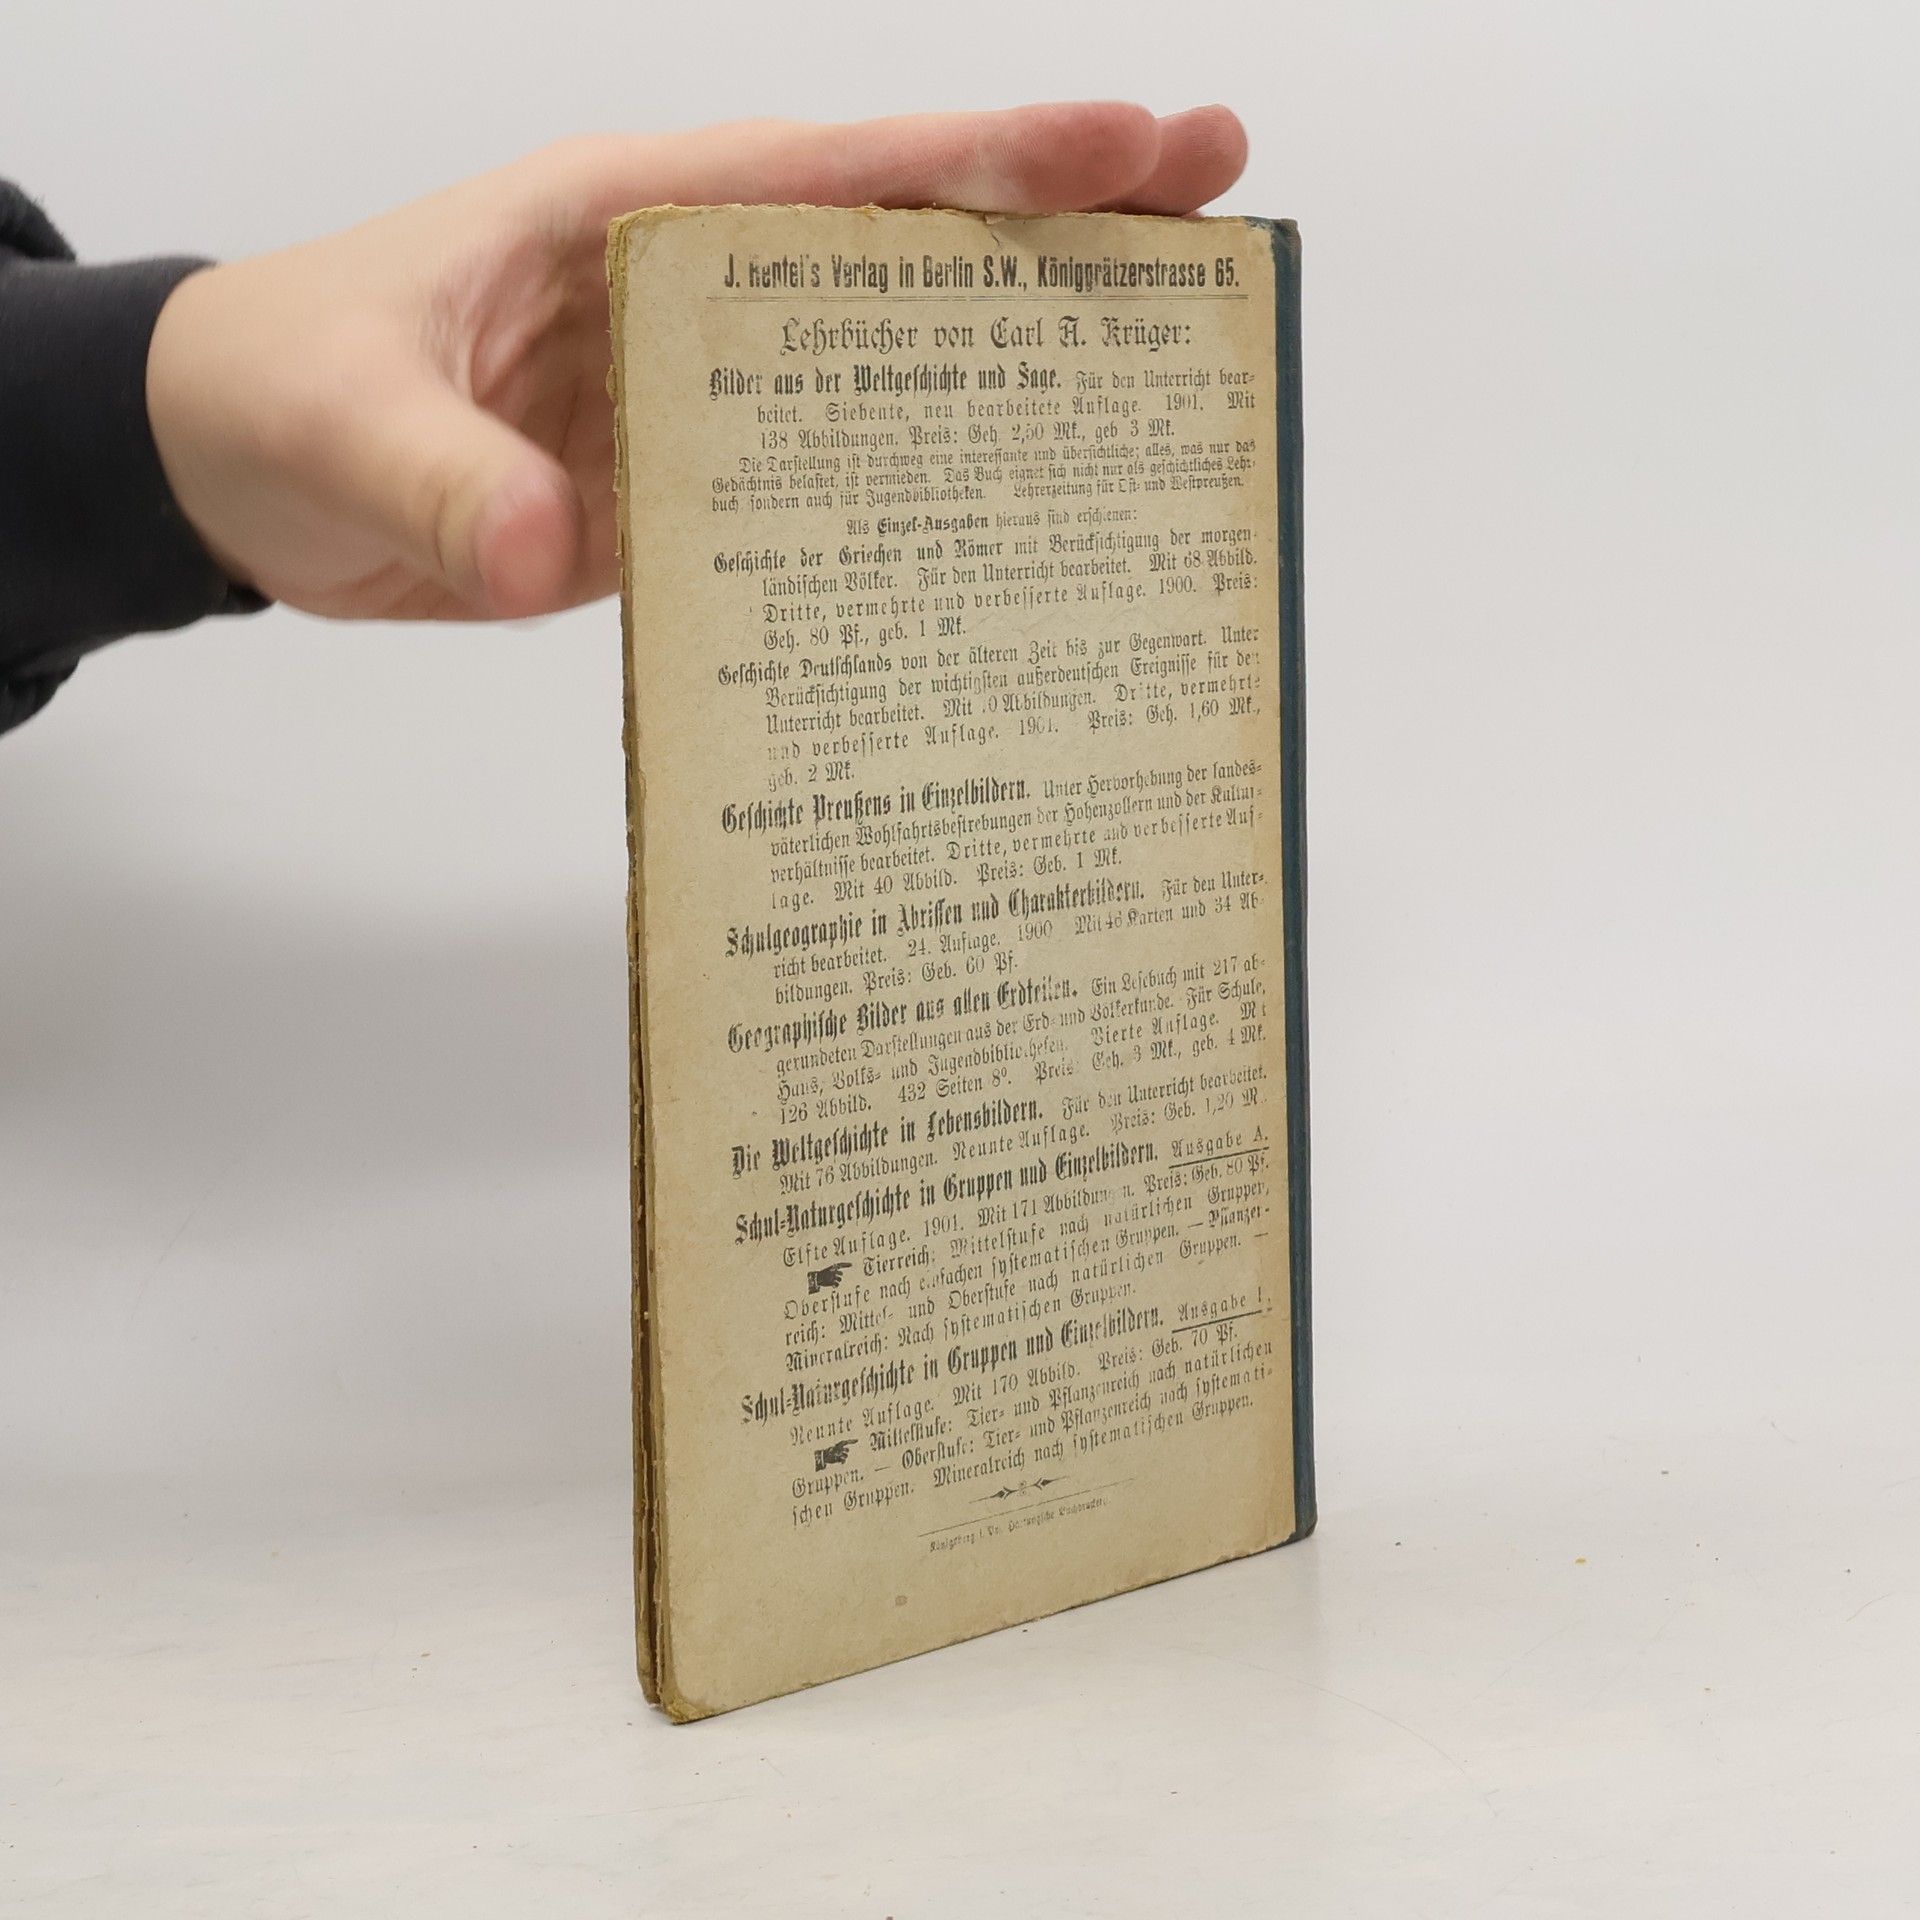 J. Hentel's Verlag in Berlin S.W., Königgrätzerstrasse 65.
Lehrbücher von Carl A. Krüger:
Bilder aus der Weltgeschichte und Sage. Für den Unterricht bear-
beitet. Siebente, neu bearbeitete Auflage. 1901. Mit
138 Abbildungen. Preis: Geh. 2,50 Mk., geb 3 Mk.
Die Darstellung ist durchweg eine interessante und übersichtliche; alles, was nur das
Gedächtnis belastet, ist vermieden. Das Buch eignet sich nicht nur als geschichtliches Lehr-
buch, sondern auch für Jugendbibliotheken. Lehrerzeitung für Ost- und Westpreußen.
Als Einzel-Ausgaben hieraus sind erschienen:
Geschichte der Griechen und Römer mit Berücksichtigung der morgen-
ländischen Völker. Für den Unterricht bearbeitet. Mit 68 Abbild.
Dritte, vermehrte und verbesserte Auflage. 1900. Preis:
Geh. 80 Pf., geb. 1 Mk.
Geschichte Deutschlands von der älteren Zeit bis zur Gegenwart. Unter
Berücksichtigung der wichtigsten außerdeutschen Ereignisse für den
Unterricht bearbeitet. Mit Abbildungen. Dritte, vermehrte
und verbesserte Auflage. 1901. Preis: Geh. 1,60 Mk.,
geb. 2 Mk.
Geschichte Preußens in Einzelbildern. Unter Hervorhebung der landes-
väterlichen Wohlfahrtsbestrebungen der Hohenzollern und der Kultur-
verhältnisse bearbeitet. Dritte, vermehrte und verbesserte Auf-
lage. Mit 40 Abbild. Preis: Geb. 1 Mk.
Schulgeographie in Abrissen und Charakterbildern. Für den Unter-
richt bearbeitet. 24. Auflage. 1900 Mit 46 Karten und 34 Ab-
bildungen. Preis: Geb. 60 Pf.
Geographische Bilder aus allen Erdteilen. Ein Lesebuch mit 217 ab-
gerundeten Darstellungen aus der Erd- und Völkerkunde. Für Schule,
Haus, Volks- und Jugendbibliotheken. Vierte Auflage. Mit
126 Abbild. 432 Seiten 8°. Preis: Geh. 3 Mk., geb. 4 Mk.
Die Weltgeschichte in Lebensbildern. Für den Unterricht bearbeitet.
Mit 76 Abbildungen. Neunte Auflage. Preis: Geb. 1,20 M.
Schul-Naturgeschichte in Gruppen und Einzelbildern. Ausgabe A.
Elfte Auflage. 1901. Mit 171 Abbildungen. Preis: Geb. 80 Pf.
☛ Tierreich: Mittelstufe nach natürlichen Gruppen,
Oberstufe nach einfachen systematischen Gruppen. — Pflanzen-
reich: Mittel- und Oberstufe nach natürlichen Gruppen. —
Mineralreich: Nach systematischen Gruppen.
Schul-Naturgeschichte in Gruppen und Einzelbildern. Ausgabe
Neunte Auflage. Mit 170 Abbild. Preis: Geb. 70 Pf.
☛ Mittelstufe: Tier- und Pflanzenreich nach natürlichen
Gruppen. — Oberstufe: Tier- und Pflanzenreich nach systemati-
schen Gruppen. Mineralreich nach systematischen Gruppen.
Königsberg i. Pr. Hartungsche Buchdruckerei.